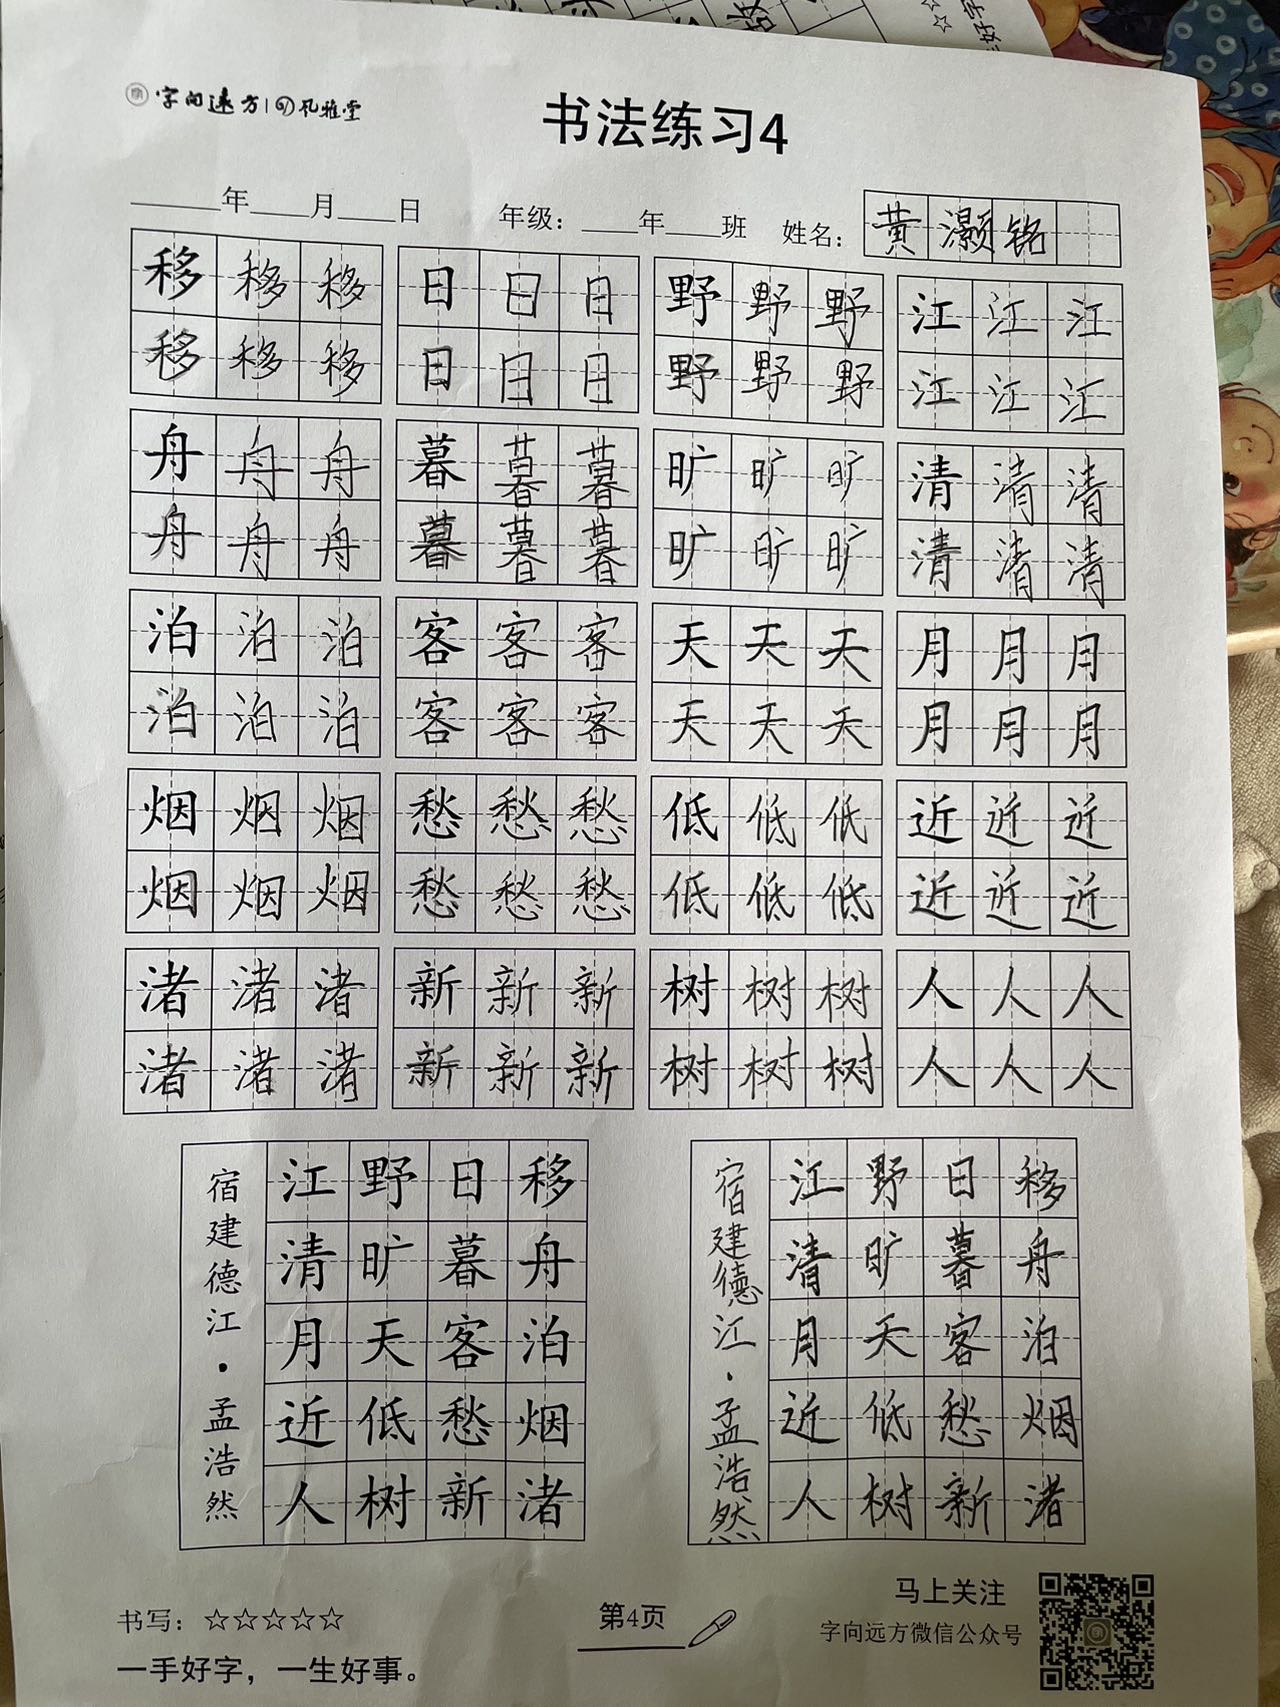 字向远方 孔雅堂
书法练习4
年 月 日 年级: 年 班 姓名: 黄灏铭
移移移 日日日 野野野 江江江
移移移 日日日 野野野 江江江
舟舟舟 暮暮暮 旷旷旷 清清清
舟舟舟 暮暮暮 旷旷旷 清清清
泊泊泊 客客客 天天天 月月月
泊泊泊 客客客 天天天 月月月
烟烟烟 愁愁愁 低低低 近近近
烟烟烟 愁愁愁 低低低 近近近
渚渚渚 新新新 树树树 人人人
渚渚渚 新新新 树树树 人人人
移舟泊烟渚
日暮客愁新
野旷天低树
江清月近人
宿建德江·孟浩然
移舟泊烟渚
日暮客愁新
野旷天低树
江清月近人
宿建德江·孟浩然
书写: ☆☆☆☆☆
一手好字，一生好事。
第4页
马上关注
字向远方微信公众号